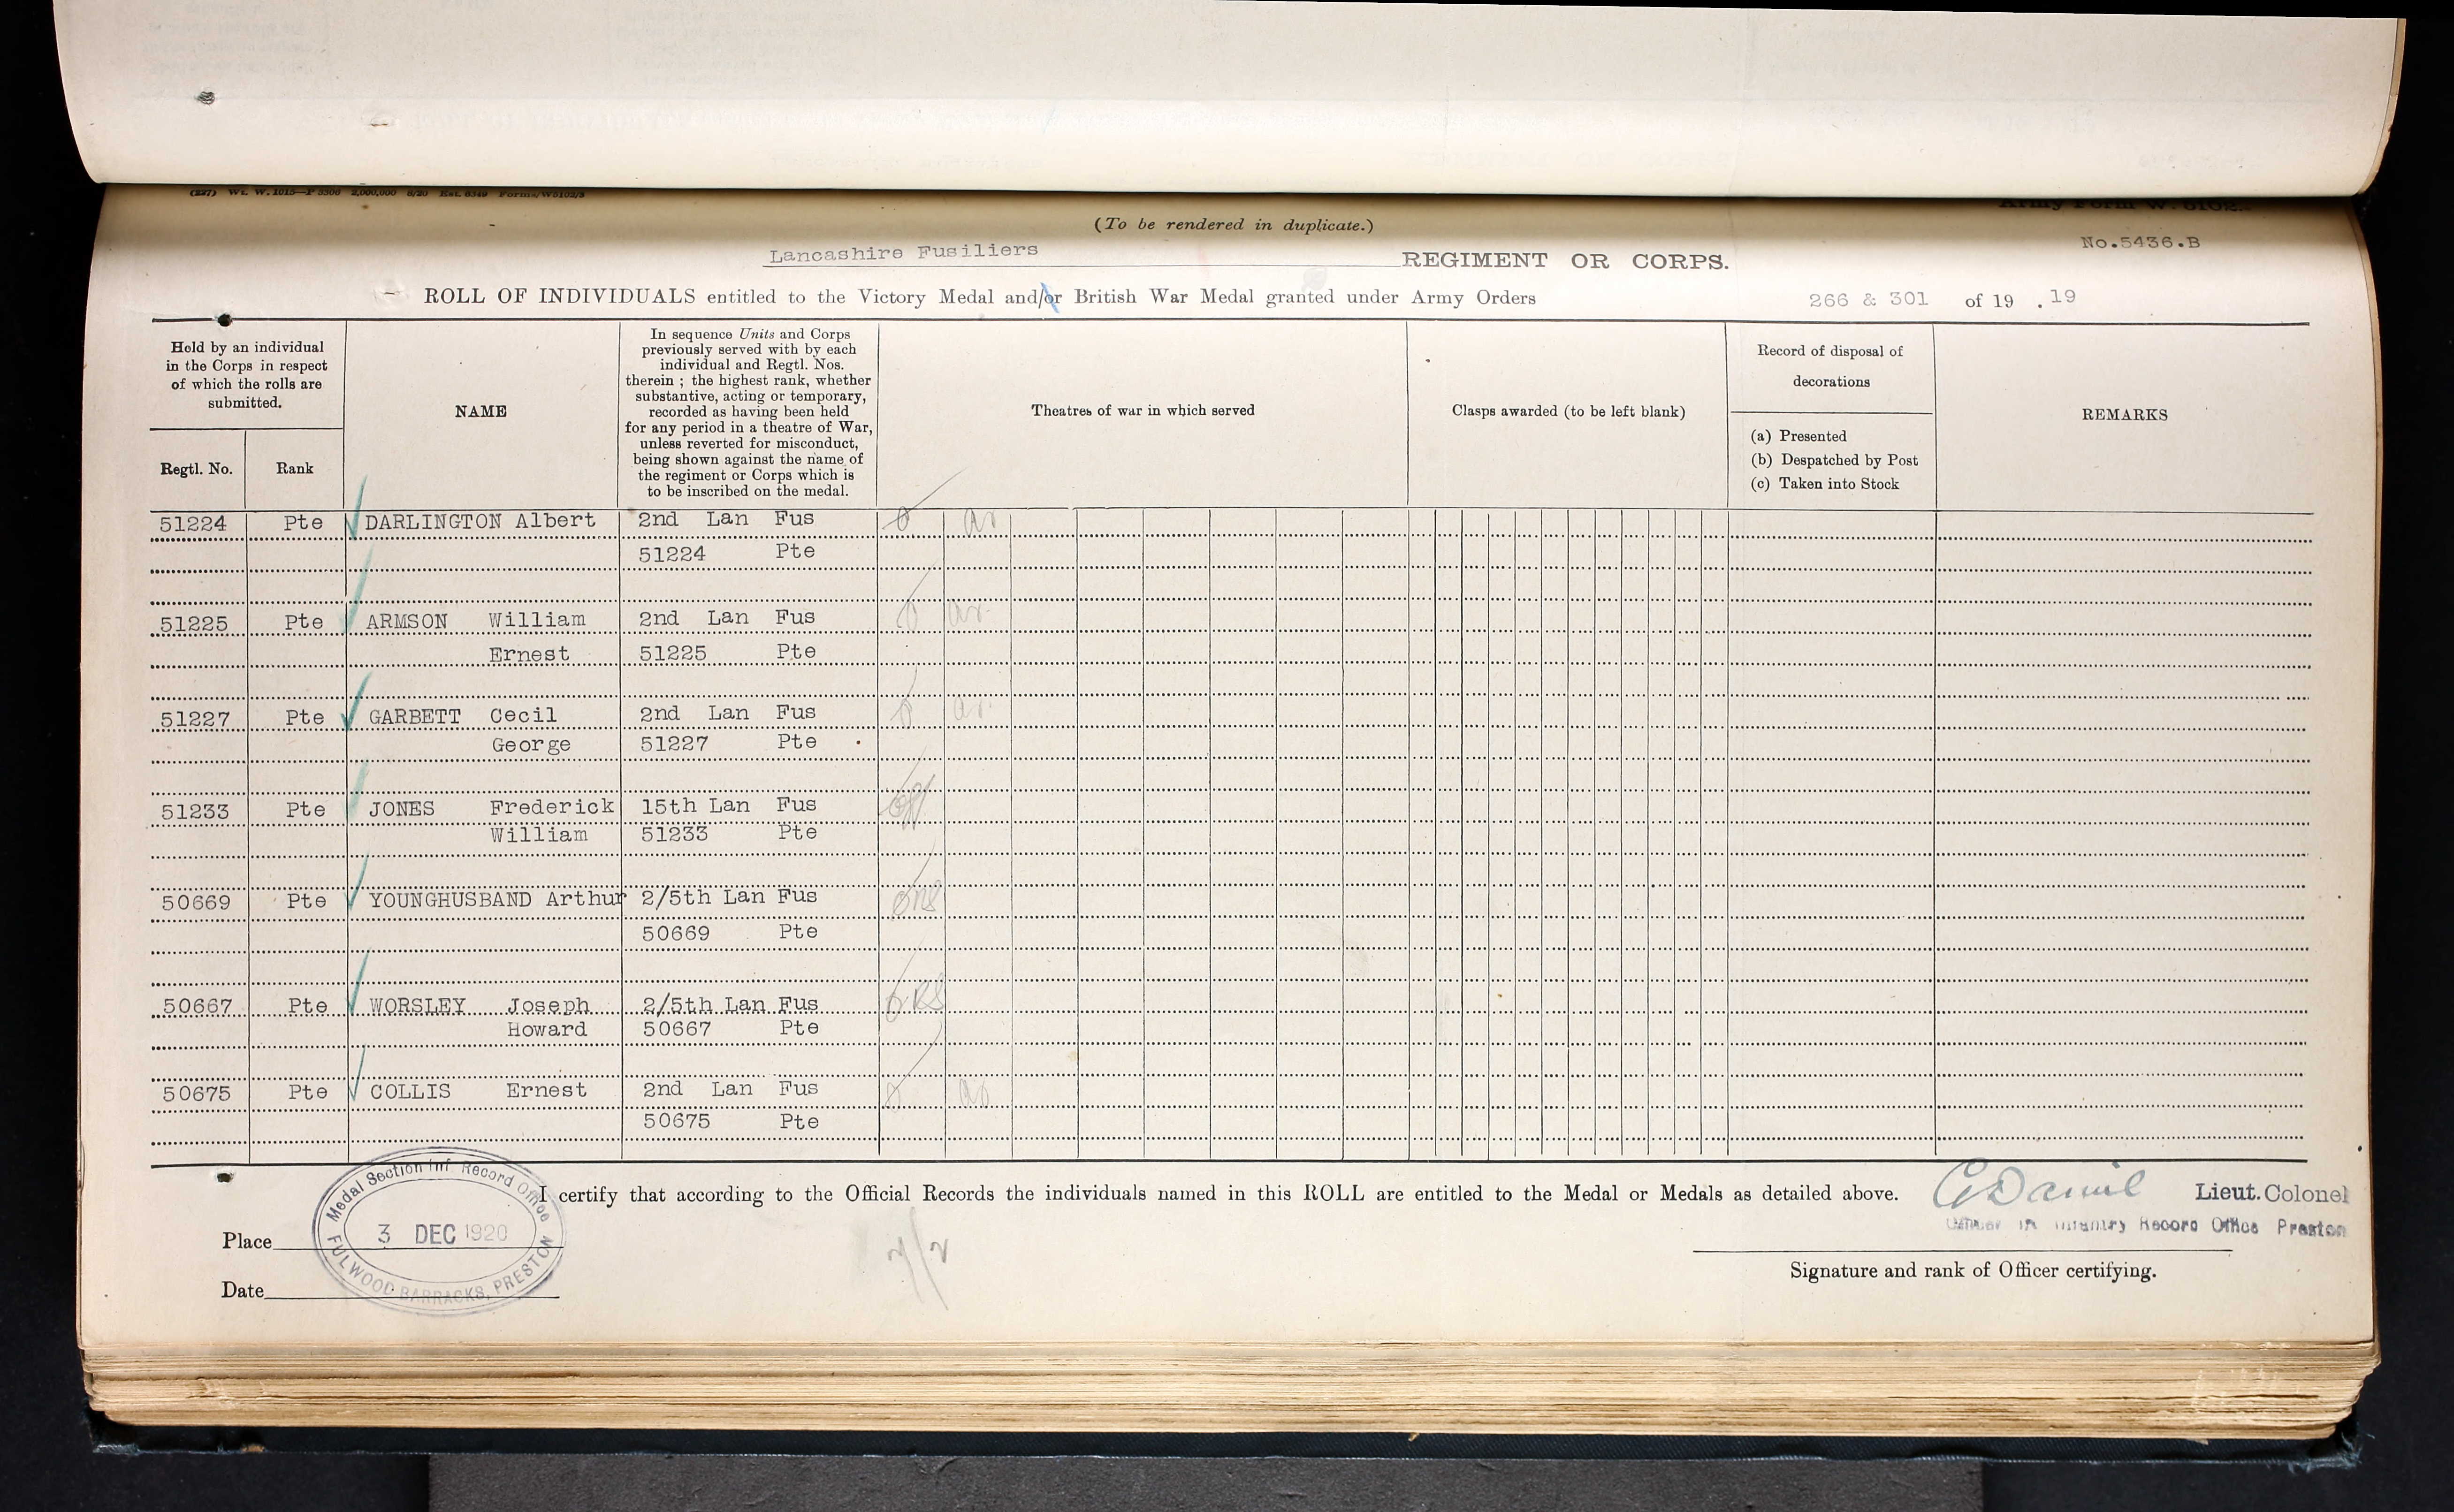 (227) Wt. W. 1015—P 3506 2,000,000 8/20 Est. 6349 Forms/W5102/3
(To be rendered in duplicate.)
No.5436.B
Lancashire Fusiliers REGIMENT OR CORPS.
ROLL OF INDIVIDUALS entitled to the Victory Medal and/or British War Medal granted under Army Orders 266 & 301 of 19 .19
Held by an individual
in the Corps in respect
of which the rolls are
submitted.
Regtl. No.
Rank
NAME
In sequence Units and Corps
previously served with by each
individual and Regtl. Nos.
therein ; the highest rank, whether
substantive, acting or temporary,
recorded as having been held
for any period in a theatre of War,
unless reverted for misconduct,
being shown against the name of
the regiment or Corps which is
to be inscribed on the medal.
Theatres of war in which served
Clasps awarded (to be left blank)
Record of disposal of
decorations
(a) Presented
(b) Despatched by Post
(c) Taken into Stock
REMARKS
51224 Pte DARLINGTON Albert 2nd Lan Fus
51224 Pte
51225 Pte ARMSON William 2nd Lan Fus
Ernest 51225 Pte
51227 Pte GARBETT Cecil 2nd Lan Fus
George 51227 Pte
51233 Pte JONES Frederick 15th Lan Fus
William 51233 Pte
50669 Pte YOUNGHUSBAND Arthur 2/5th Lan Fus
50669 Pte
50667 Pte WORSLEY Joseph 2/5th Lan Fus
Howard 50667 Pte
50675 Pte COLLIS Ernest 2nd Lan Fus
50675 Pte
I certify that according to the Official Records the individuals named in this ROLL are entitled to the Medal or Medals as detailed above.
Lieut. Colonel
Infantry Record Office Preston
Medal Section Inf. Record Office
3 DEC 1920
FULWOOD BARRACKS, PRESTON
Place
Date
Signature and rank of Officer certifying.